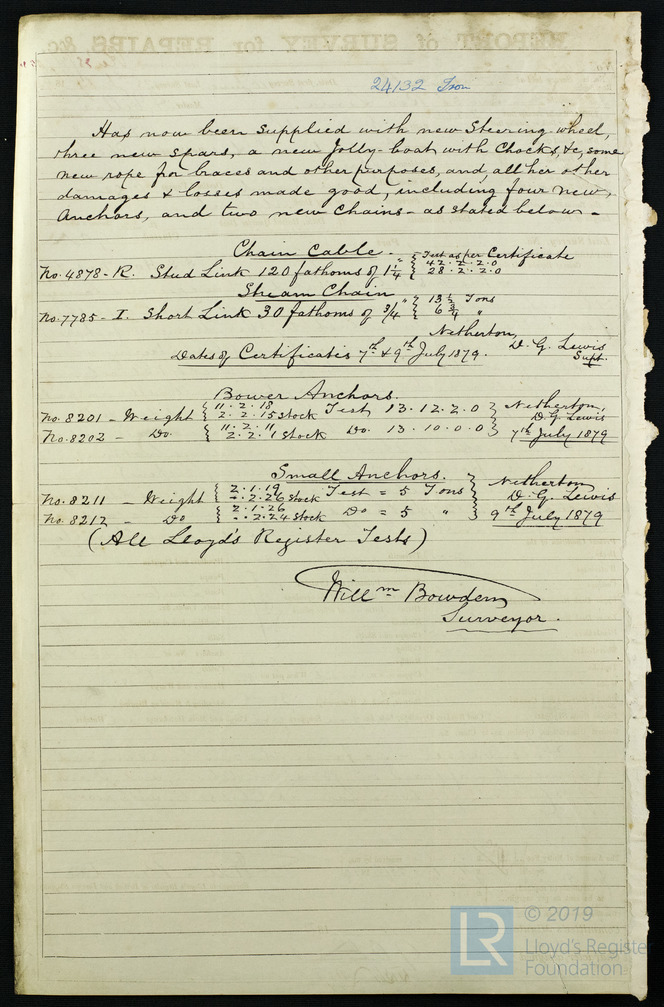 24132 Iron
Has now been supplied with new Steering-wheel,
three new spars, a new Jolly-boat with Chocks, &c, some
new rope for braces and other purposes, and, all her other
damages & losses made good, including four new
Anchors, and two new Chains - as stated below -
Chain Cable - Test as per Certificate
No. 4878 - R. Stud Link 120 fathoms of 1 1/4" { 42 . 2 . 2 . 0
28 . 2 . 2 . 0
Stream Chain
No. 7785 - I. Short Link 30 fathoms of 3/4" { 13 1/2 Tons
6 3/4 "
Netherton,
Dates of Certificates 7th & 9th July 1879. D. G. Lewis
Supt.
Bower Anchors.
No. 8201 - Weight { 11 . 2 . 18
2 . 2 . 15 Stock Test 13 . 12 . 2 . 0 } Netherton,
D. G. Lewis
No. 8202 - Do. { 11 . 2 . 11
2 . 2 . 1 Stock Do. 13 . 10 . 0 . 0 } 7th July 1879
Small Anchors.
No. 8211 - Weight { 2 . 1 . 19
- . 2 . 26 Stock Test = 5 Tons } Netherton
D. G. Lewis
No. 8212 - Do { 2 . 1 . 26
- . 2 . 24 Stock Do = 5 " } 9th July 1879
(All Lloyd's Register Tests)
Willm Bowden
Surveyor.
REPORT of SURVEY for REPAIRS, &c.
LR © 2019
Lloyd's Register
Foundation